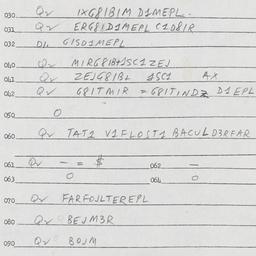 030 Qv IXG8IBIM D1MEPL.
031 Qv ERG8ID1MEPL C1O8IR
032 DI. GISO1MEPL
040 Qv MIRG8IB1SC1ZEJ
041 Qv ZEJG8IBI 1SC1 AX
042 Qv G8ITMIR = G8ITINDZ D1EPL
050 0
060 Qv TAT1 V1FLOST1 BACULD3RFAR
061 Qv - = $ 062 -
063 0 064 0
070 Qv FARFOJLTEREPL
080 Qv BEJM3R
090 Qv BOJM